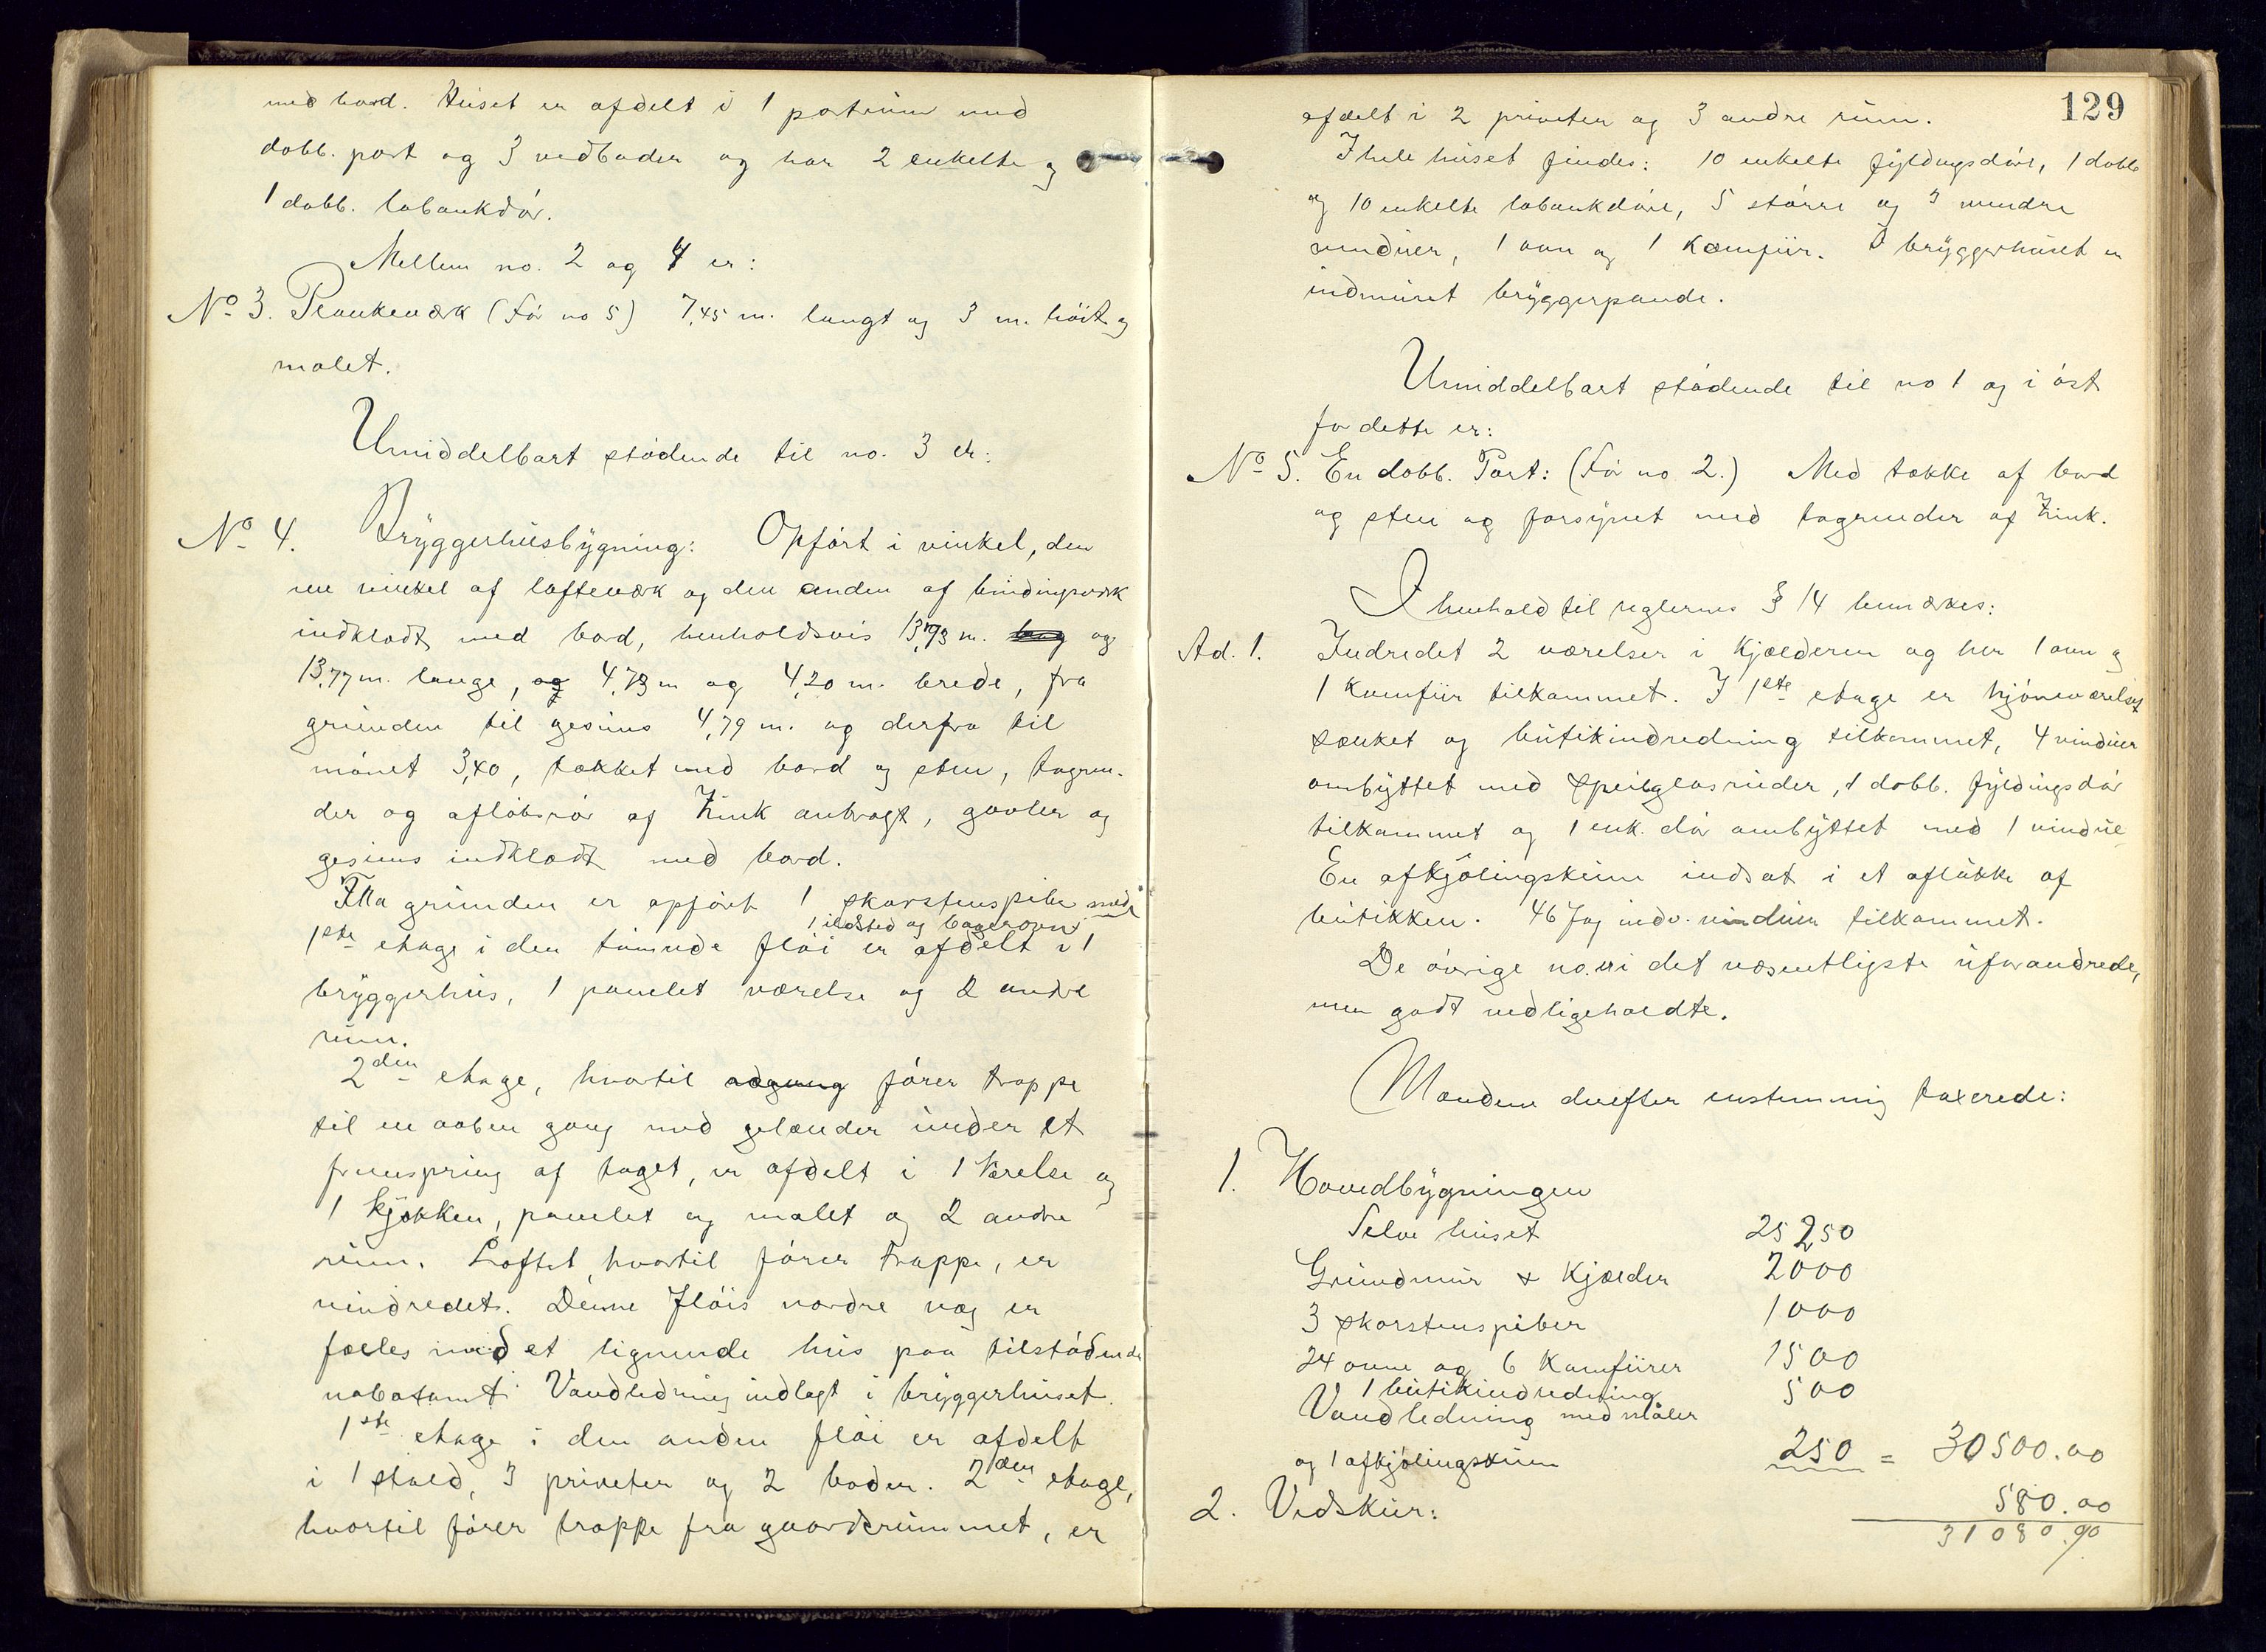 med bord. Huset er afdelt i 1 portrum med
dobb. port og 3 vedboder og har 2 enkelte og
1 dobb. labankdör.
Mellem no. 2 og 4 er:
No 3. Plankeværk (För no 5) 7,45 m. langt og 3 m. höit og
malet.
Umiddelbart stödende til no. 3 er:
No 4. Bryggerhusbygning: Opfört i vinkel, den
ene vinkel af lafteværk og den anden af bindingsværk
indklædt med bord, henholdsvis 13,73 m. og
13,77 m. lange, og 4,73 m og 4,20 m. brede, fra
grunden til gesims 4,79 m. og derfra til
mönet 3,40, tækket med bord og sten, tagren-
der og aflöbsrör af Zink anbragt, gavler og
gesims indklædt med bord.
Fra grunden er opfört 1 skorstenspibe med
1 ildsted og bagerovn
1ste etage i den tömrede flöi er afdelt i 1
bryggerhus, 1 panelet værelse og 2 andre
rum.
2den etage, hvortil adgang förer trappe
til en aaben gang med gelænder under et
fremspring af taget, er afdelt i 1 Værelse og
1 kjökken, panelet og malet og 2 andre
rum. Loftet, hvortil förer trappe, er
uindredet. Denne flöis nordre væg er
fælles med et lignende hus paa tilstödende
nabotomt. Vandledning indlagt i bryggerhuset.
1ste etage i den anden flöi er afdelt
i 1 stald, 3 priveter og 2 boder. 2den etage,
hvortil förer trappe fra gaardsrummet, er
129
afdelt i 2 priveter og 3 andre rum.
I hele huset findes: 10 enkelte fyldingsdöre, 1 dobb
og 10 enkelte labankdöre, 5 större og 3 mindre
vinduer, 1 ovn og 1 Komfur. I bryggerhuset er
indmuret bryggerpande.
Umiddelbart stödende til no 1 og i öst
for dette er:
No 5. En dobb. Port: (För no 2.) Med tække af bord
og sten og forsynet med tagrender af Zink.
I henhold til reglernes § 14 bemærkes:
Ad. 1. Indredet 2 værelser i Kjælderen og her 1 ovn og
1 Komfur tilkommet. I 1ste etage er hjörneværelset
sænket og butikindredning tilkommet, 4 vinduer
ombyttet med speilglasruder, 1 dobb. fyldingsdör
tilkommet og 1 enk. dör ombyttet med 1 vindue
En afkjölingskum indsat i et aflukke af
butikken. 46 fag indv. vinduer tilkommet.
De övrige no. er i det væsentligste uforandrede,
men godt vedligeholdte.
Mændene derefter enstemmig taxerede:
1. Hovedbygningen
Selve huset 25 250
Grundmur & Kjælder 2000
3 skorstenspiber 1000
24 ovne og 6 Komfurer 1500
1 butikindredning 500
Vandledning med måler
og 1 afkjölingskum 250 = 30500.00
2. Vedskur: 580.00
31080.00